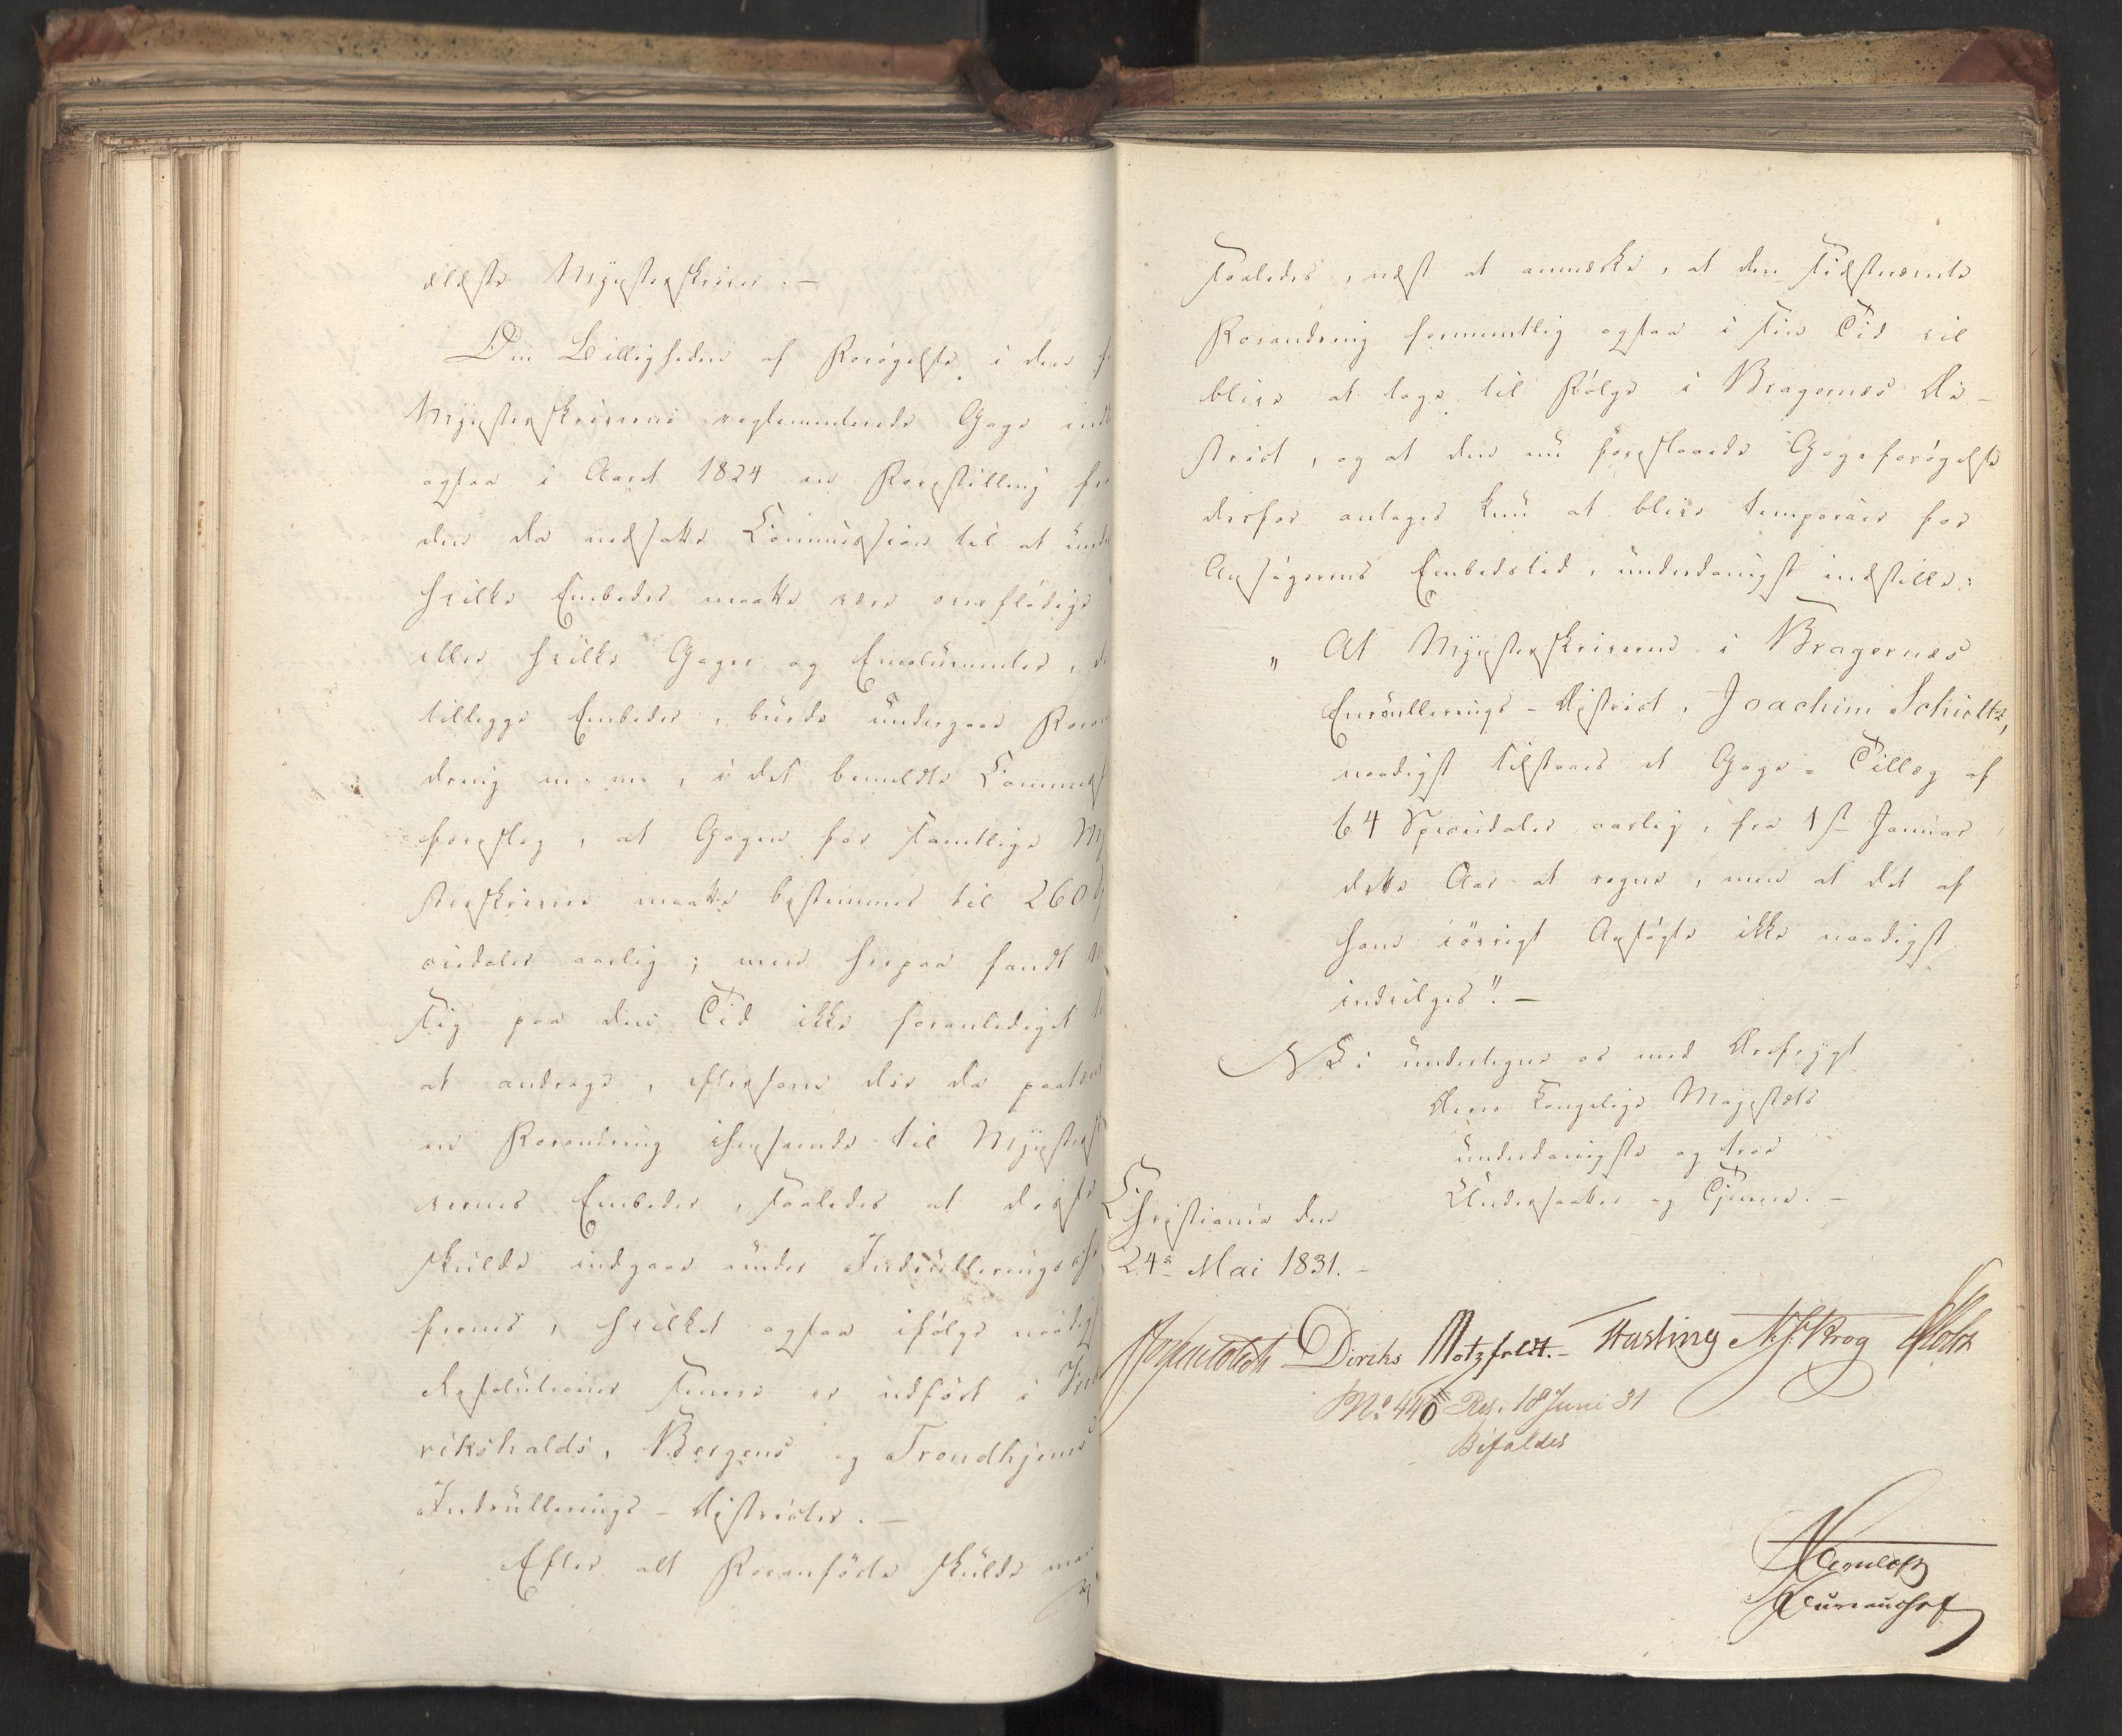 ældste Mynsterskriver. —
Om Billigheden af Forøgelse i den
Mynsterskriverne reglementerede Gage
ogsaa i Aaret 1824 en Forestilling
den da nedsatte Commission til at
hvilke Embeder maatte være overflødige
eller hvilke Gager og Emolumenter,
tillagge Embeder, burde undergaae
dring m. m., i det bemeldte
foreslog, at Gagen for samtlige
sterskrivere maatte bestemmes til 260
ciedaler aarlig; men herpaa fandt
sig paa den Tid ikke foranlediget
at andrage, eftersom der da
en Forandring ihenseende til
vernes Embeder, saaledes at disse
skulde indgaae under Indrullerings
fernes, hvilket ogsaa ifølge
Resolutioner senere er udført i
rikshalds, Bergens og Trondhjems
Indrullerings-Districter. —
Efter alt Foranførte skulde
saaledes, næst at anmærke, at den sidstnævnte
Forandring formeentlig ogsaa i sin Tid vil
blive at tage til Følge i Bragernæs Di-
strict, og at den nu foreslaaede Gageforøgelse
derfor antages kun at blive temporair for
Ansøgerens Embedstid, underdanigst indstille:
„ At Mynsterskriveren i Bragernæs
Enroullerings-District, Joachim Schieltz,
naadigst tilstaaes et Gage-Tillæg af
64 Speciedaler aarlig, fra 1ste Januar
dette Aar at regne, men at det af
ham iøvrigt Ansøgte ikke naadigst
indvilges". —
Vi undertegne os med Ærefrygt
Deres Kongelige Majestæts
underdanigste og troe
Undersaatter og Tjenere. —
Christiania den
24de Mai 1831. —
Diriks Motzfeldt. — Fasting N. J. Krog Holst
No 446 Res. 18 Juni 31
Bifaldes